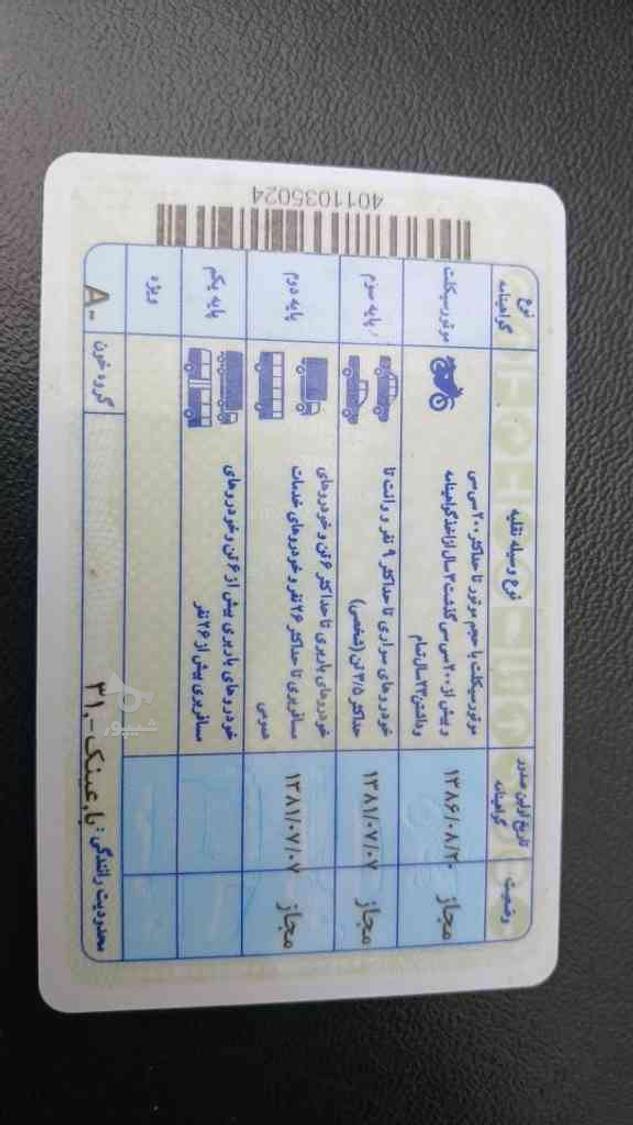 4011035024
نوع گواهینامه
نوع وسیله نقلیه
تاریخ اولین صدور گواهینامه
وضعیت
موتورسیکلت
موتورسیکلت با حجم موتور تا حداکثر ۲۰۰ سی‌سی
و بیش از ۲۰۰ سی سی گذشت ۲ سال از اخذ گواهینامه
و داشتن ۲۳ سال تمام
۱۳۸۶/۰۸/۲۰
مجاز
پایه سوم
خودروهای سواری تا حداکثر ۹ نفر و وانت تا
حداکثر ۳/۵ تن (شخصی)
۱۳۸۱/۰۷/۰۷
مجاز
پایه دوم
خودروهای باربری تا حداکثر ۶ تن و خودروهای
مسافربری تا حداکثر ۲۶ نفر و خودروهای خدمات
عمومی
۱۳۸۱/۰۷/۰۷
مجاز
پایه یکم
خودروهای باربری بیش از ۶ تن و خودروهای
مسافربری بیش از ۲۶ نفر
ویژه
A-
گروه خون
محدودیت رانندگی: با عینک-۳۱
شیپور